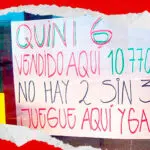 QUINI 6
VENDIDO AQUÍ 10.770
NO HAY 2 SIN 3
JUEGUE AQUÍ Y GA